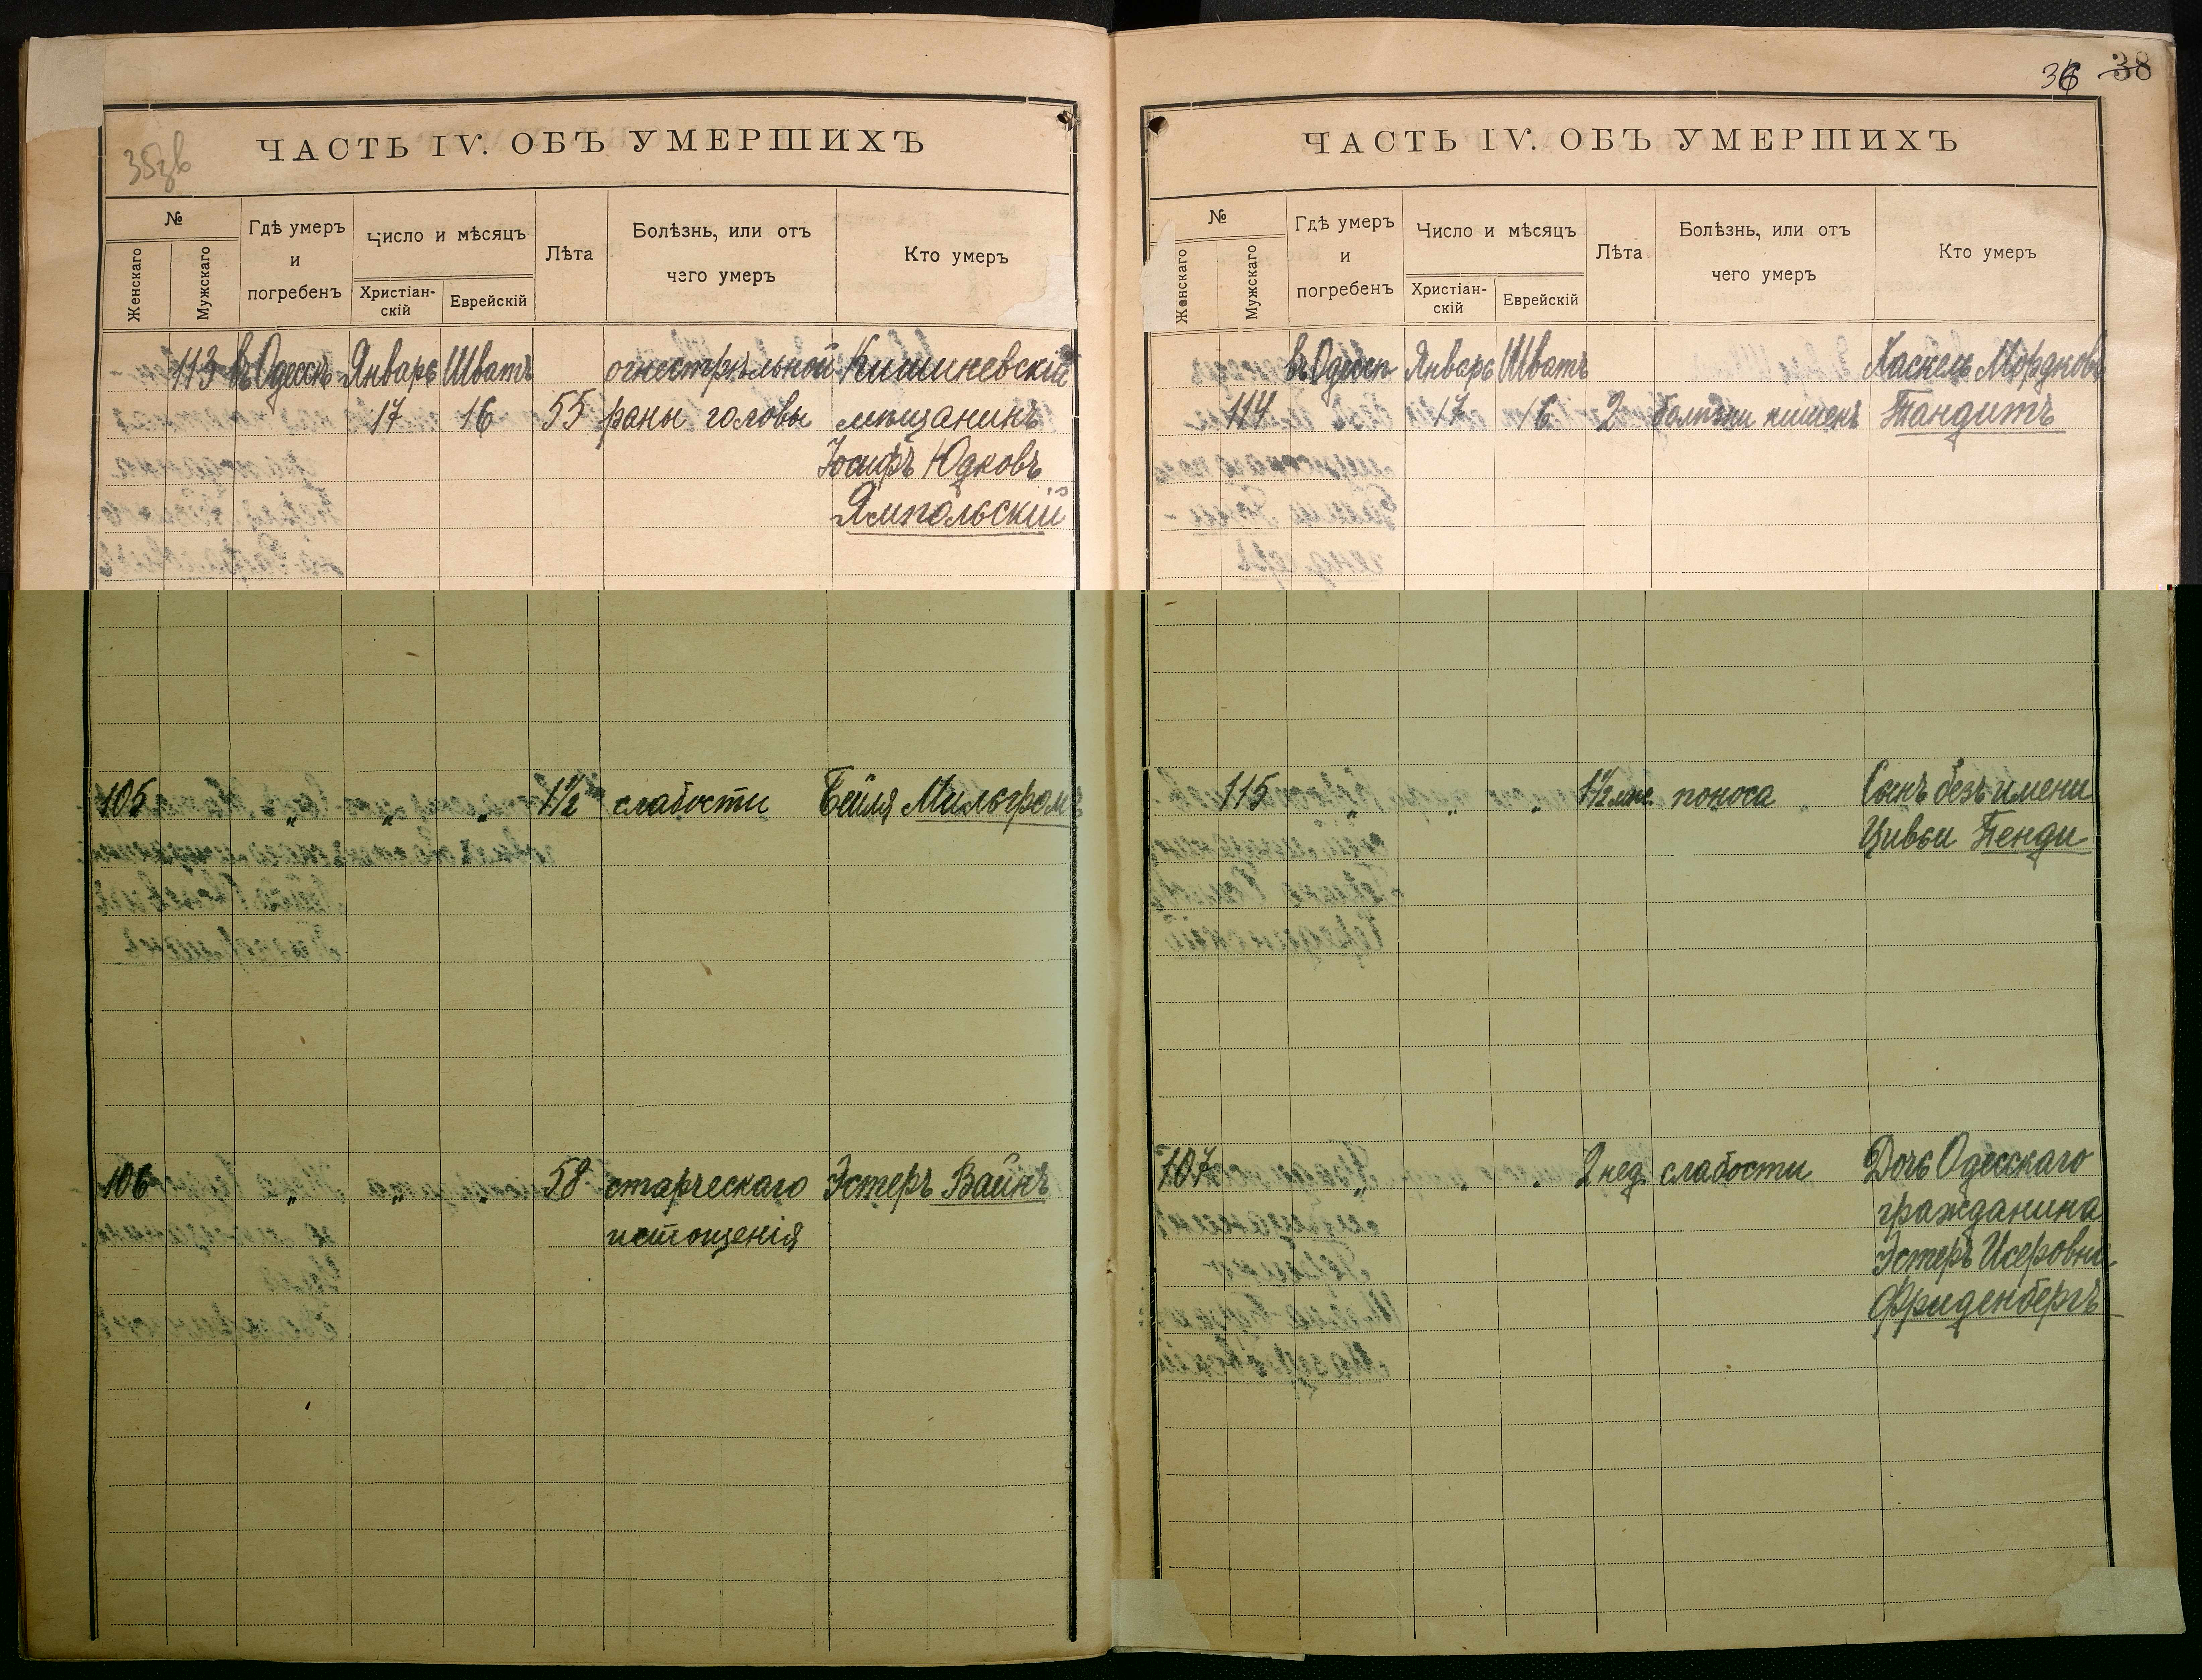 ЧАСТЬ IV. ОБЪ УМЕРШИХЪ
35зв
№
Женскаго
Мужскаго
Гдѣ умеръ
и
погребенъ
Число и мѣсяцъ
Христіан-
скій
Еврейскій
Лѣта
Болѣзнь, или отъ
чего умеръ
Кто умеръ
113 въ Одессѣ Январь Шватъ огнестрѣльной Кишиневскій
17 16 55 раны головы мѣщанинъ
Іосифъ Юдковъ
Ямпольскій
105 " " " 1½ слабости Бейля Мильгромъ
106 " " " 58 старческаго Эстеръ Вайнъ
истощенія
36 38
ЧАСТЬ IV. ОБЪ УМЕРШИХЪ
№
Женскаго
Мужскаго
Гдѣ умеръ
и
погребенъ
Число и мѣсяцъ
Христіан-
скій
Еврейскій
Лѣта
Болѣзнь, или отъ
чего умеръ
Кто умеръ
въ Одессѣ Январь Шватъ Хаскель Мордковъ
114 17 16 2 болѣзни кишекъ Тандитъ
115 " " " 1½ мѣс. поноса Сынъ безъ имени
Цивьи Тенди
107 " " " 2 нед. слабости Дочь Одесскаго
гражданина
Эстеръ Исеровна
Фриденбергъ